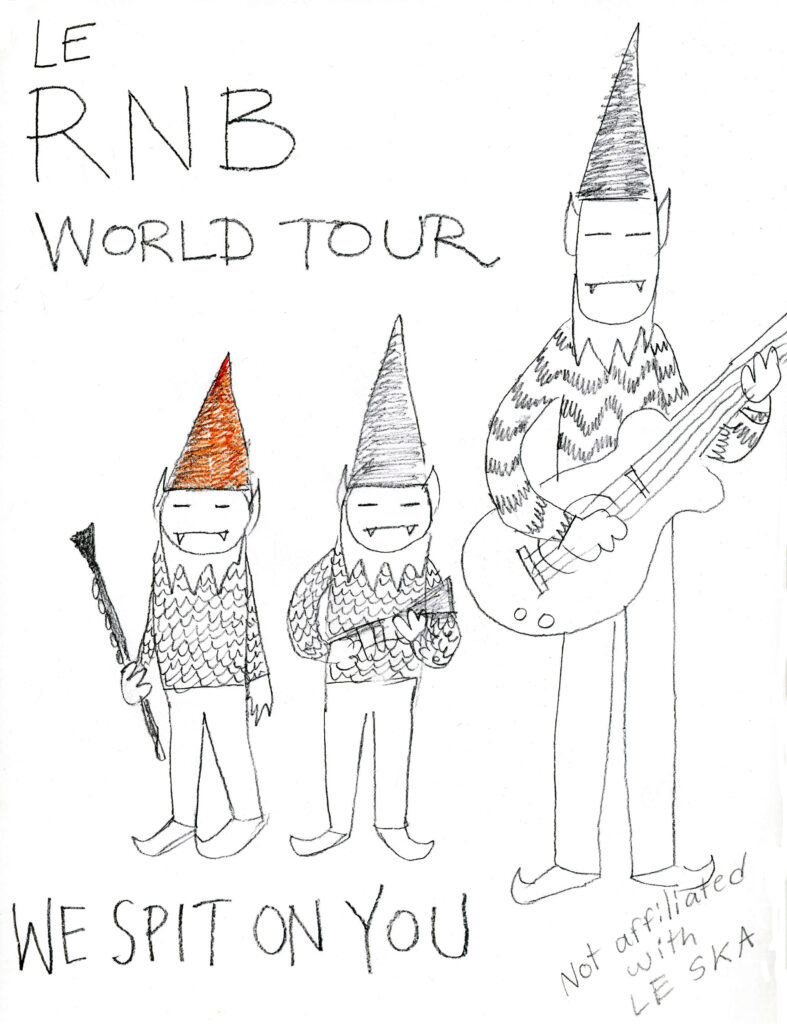 LE
RNB
WORLD TOUR
WE SPIT ON YOU
Not affiliated
with
LE SKA